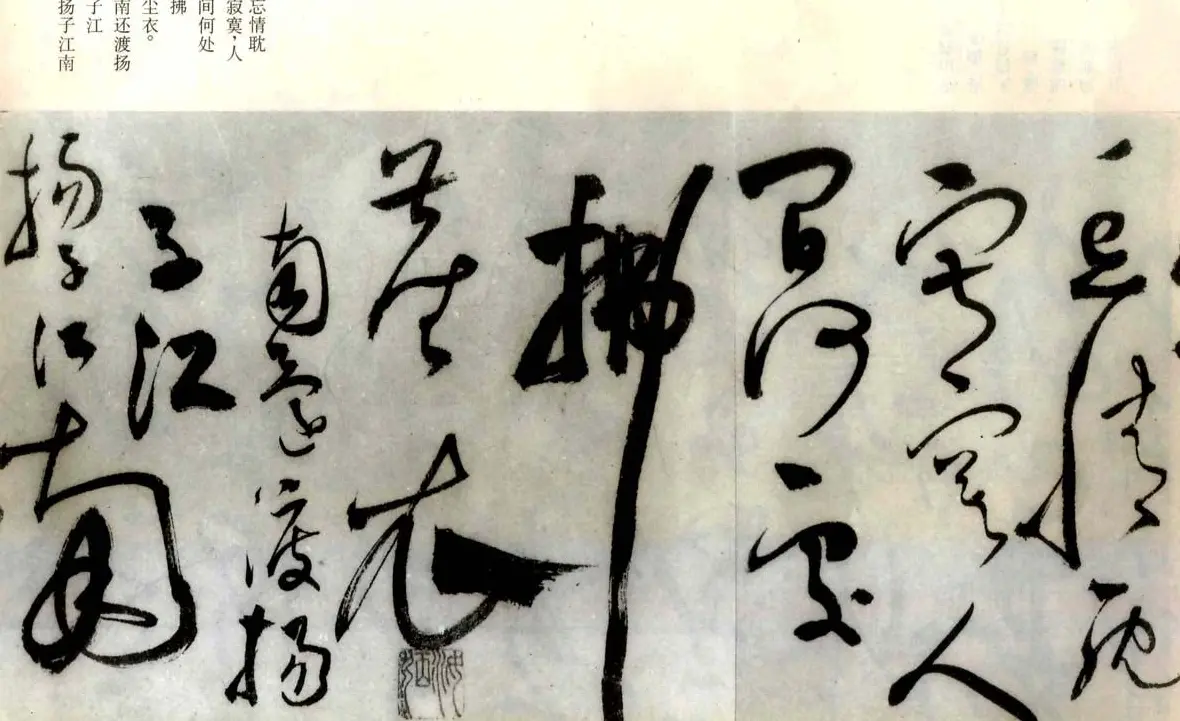 忘情耽
寂寞，人
间何处
拂
尘衣。
南还渡扬
子江
扬子江南
忘情耽
寂寞人
間何處
拂
塵衣
南還渡揚
子江
揚子江南